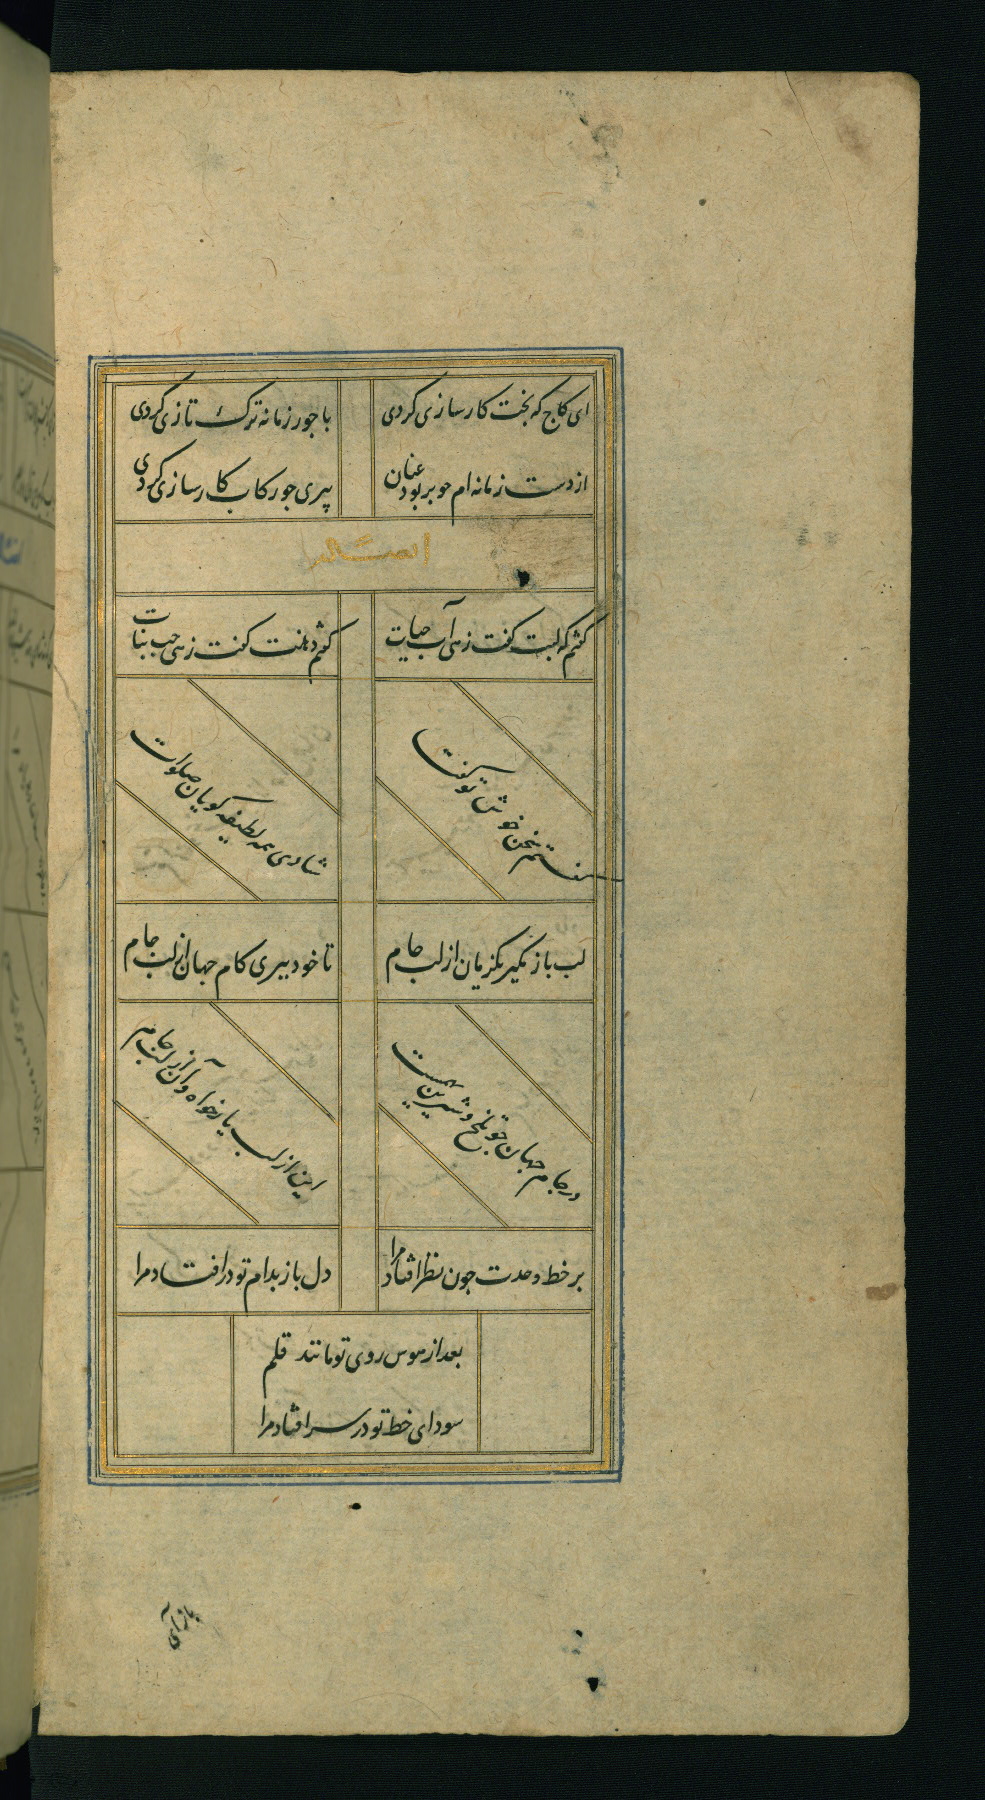 ای کاج که بخت کارسازی کردی
با جور زمانه ترک تازی کردی
از دست زمانه ام چو بربود عنان
پیری چو رکاب کارسازی کردی
ایضا له
گفتم که لبت گفت زهی آب حیات
گفتم دهنت گفت زهی حب نبات
گفتم سخن خوش تو گفتا
شادی همه لطیفه گویان صلوات
لب باز مگیر یکزمان از لب جام
تا خود ببری کام جهان از لب جام
در جام جهان چو تلخ و شیرین بهمست
این از لب یار خواه و آن از لب جام
بر خط وحدت چون نظر افتاد مرا
دل باز بدام تو در افتاد مرا
بعد از هوس روی تو مانند قلم
سودای خط تو در سر افتاد مرا